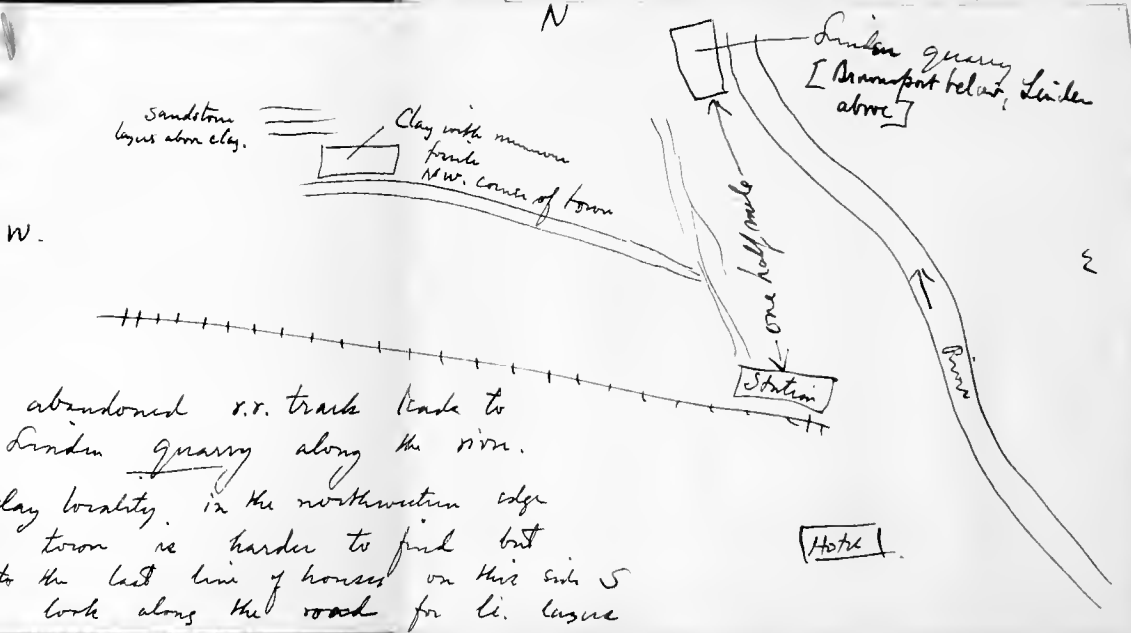 N
Linden quarry
[Brownsport below, Linden
above]
Sandstone
layers above clay.
Clay with
NW. corner of town
W.
E
one half mile
River
Station
Hotel
abandoned r.r. track leads to
Linden quarry along the river.
clay locality in the northwestern edge
town is harder to find but
to the last line of houses on this side
look along the road for li. layers